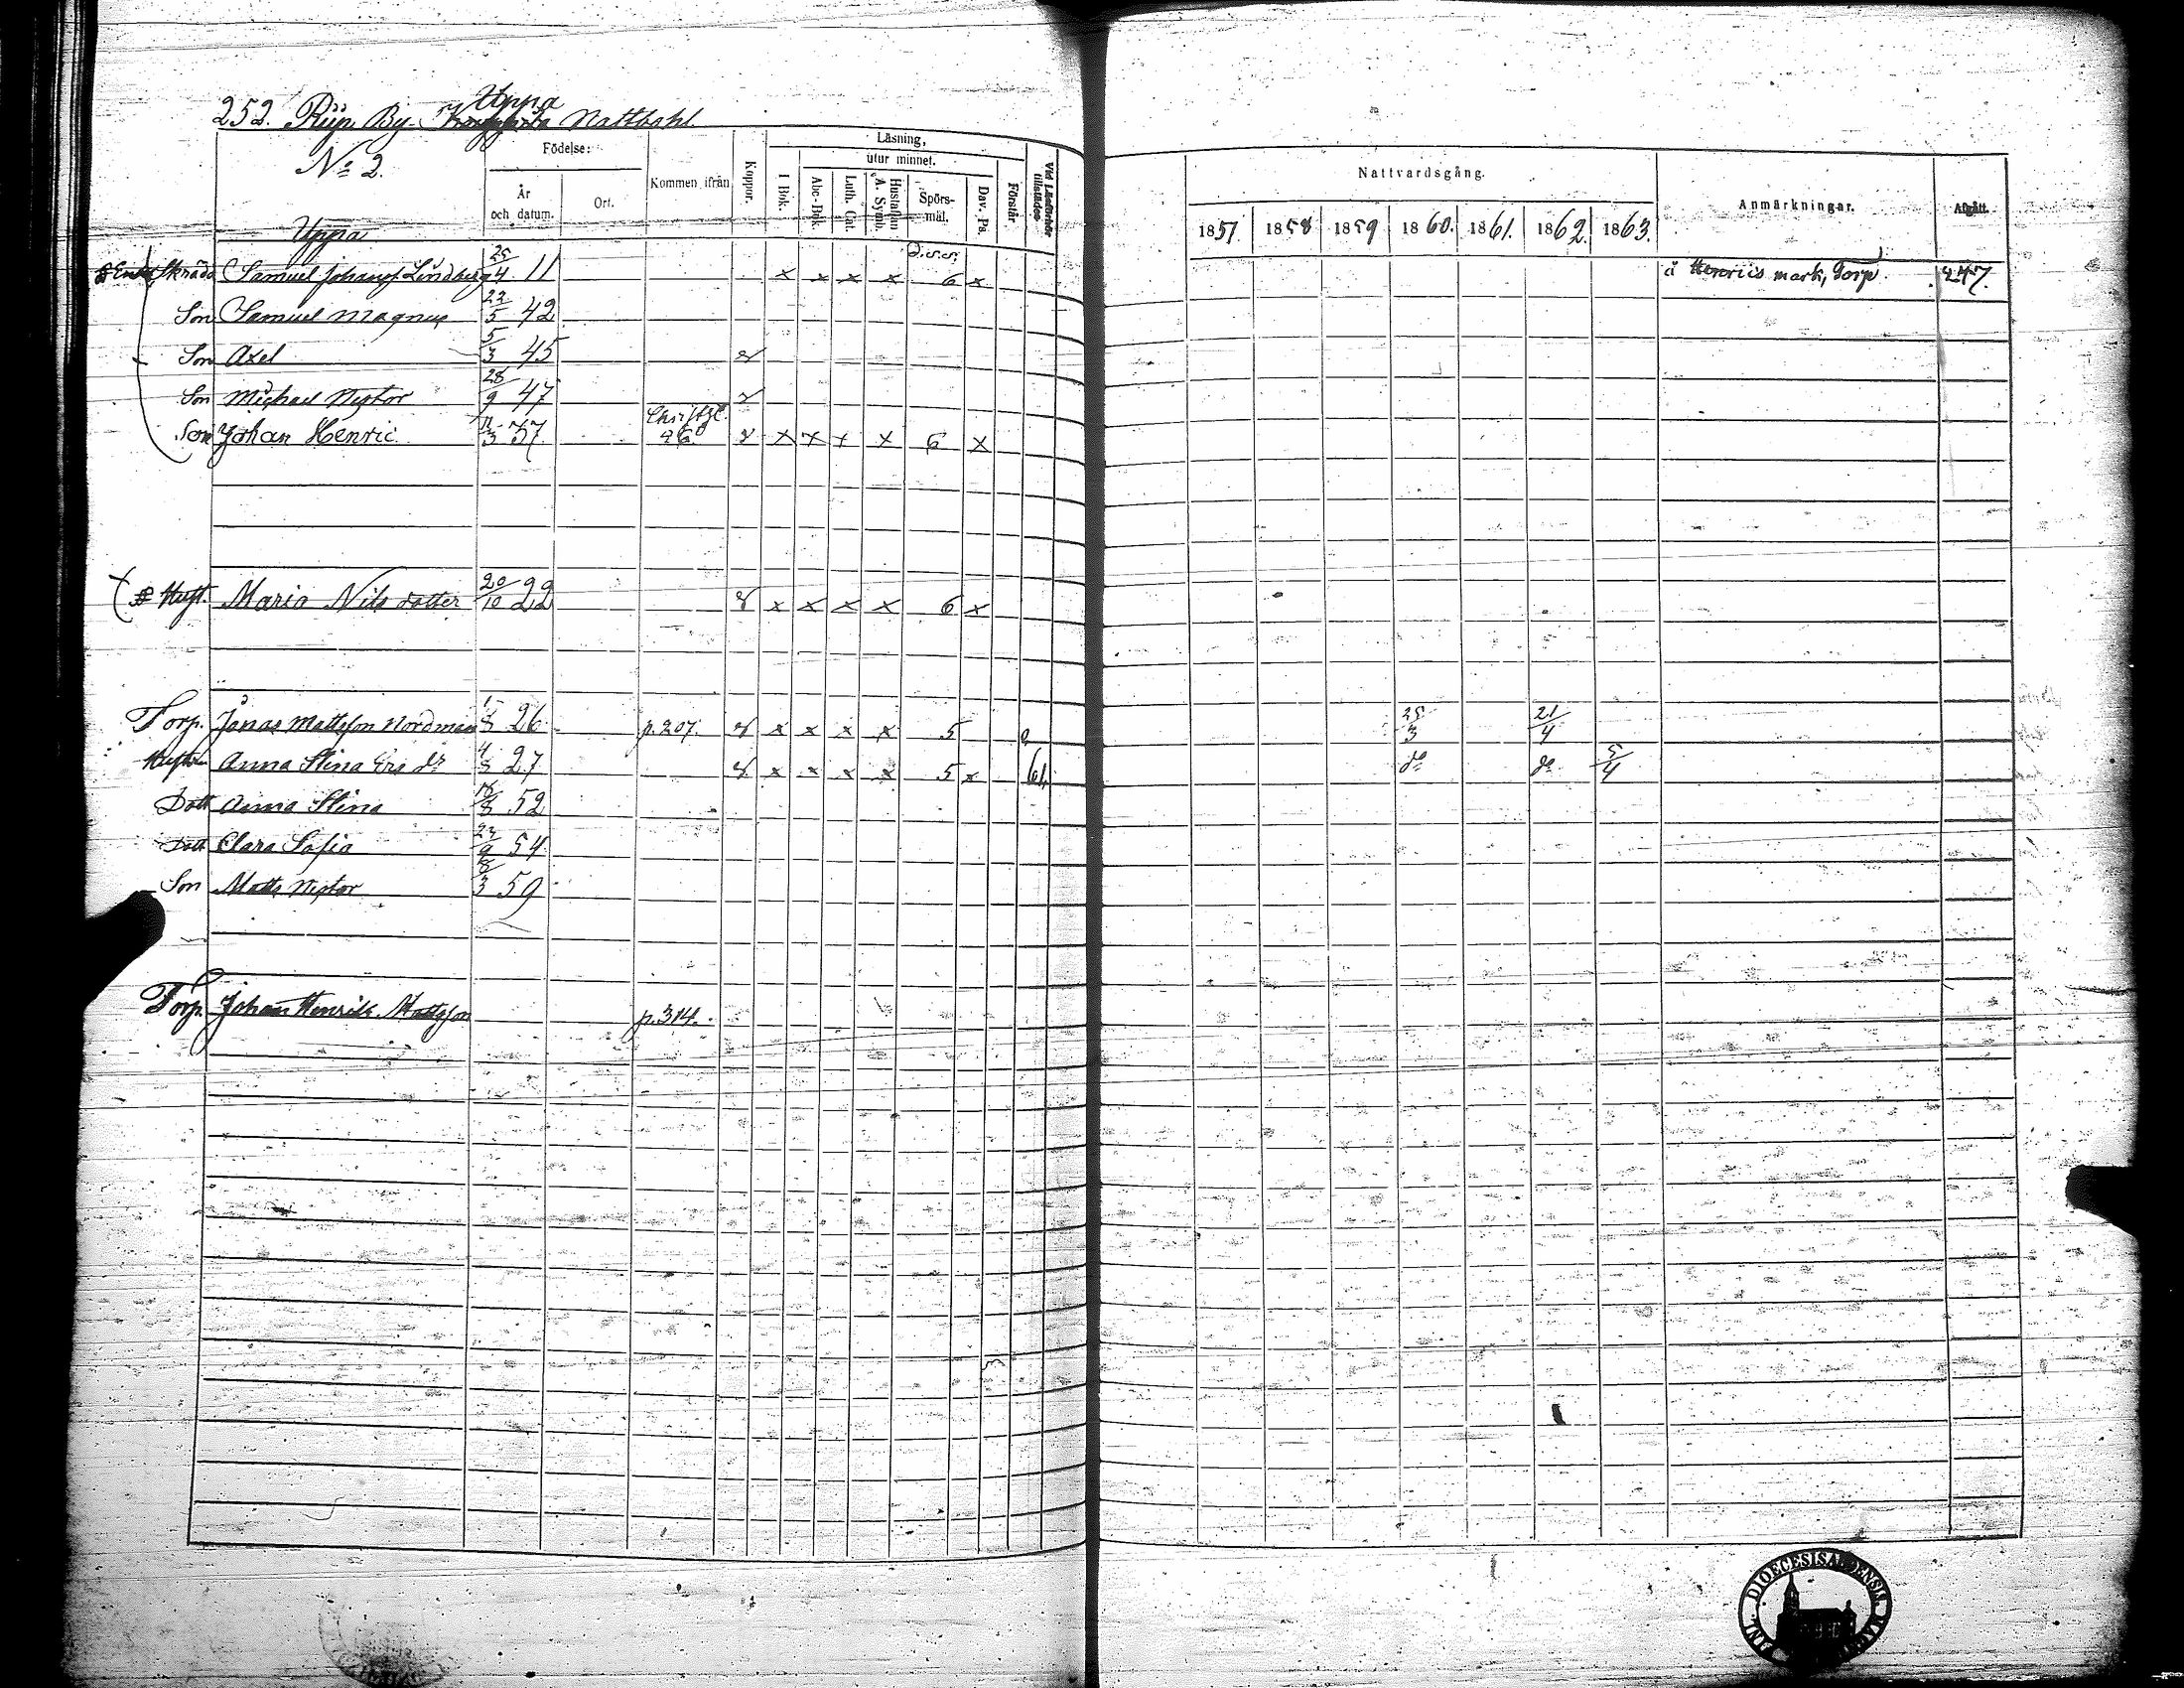 252. By. Uppa Nattbohl
Nº 2.
Födelse:
År och datum.
Ort.
Kommen ifrån
Koppor.
Läsning,
utur minnet.
I Bok.
Abc-Bok.
Luth. Cat.
Hustaflan A. Symb.
Spörsmål.
Dav. Ps.
Förstår
Vid Läseförhör tillstädes
Nattvardsgång.
1857. 1858 1859 1860. 1861. 1862. 1863.
Anmärkningar.
Afgått.
Uppa
Samuel Johansf Lindberg 25/4 11 x x x x 6 x å Henriis mark, Torp 247.
Son Samuel Magnus 22/5 42
Son Axel 5/3 45
Son Michael Victor 28/9 47
Son Johan Henric 3 37 460 x x x x 6 x
Hust. Maria Nils dotter 20/10 22 x x x x 6 x
Torp. Jonas Mattsson Nordman 1/8 26 p. 207. x x x x 5 25/3 21/4
Hustr Anna Stina Ers dr 4/8 27 x x x x 5 x 61. do do 5/4
Dott Anna Stina 18/8 52
Dott Clara Sofia 9 54
Son Matts Victor 3 59
Torp. Johan Henrik Mattsson p. 314.